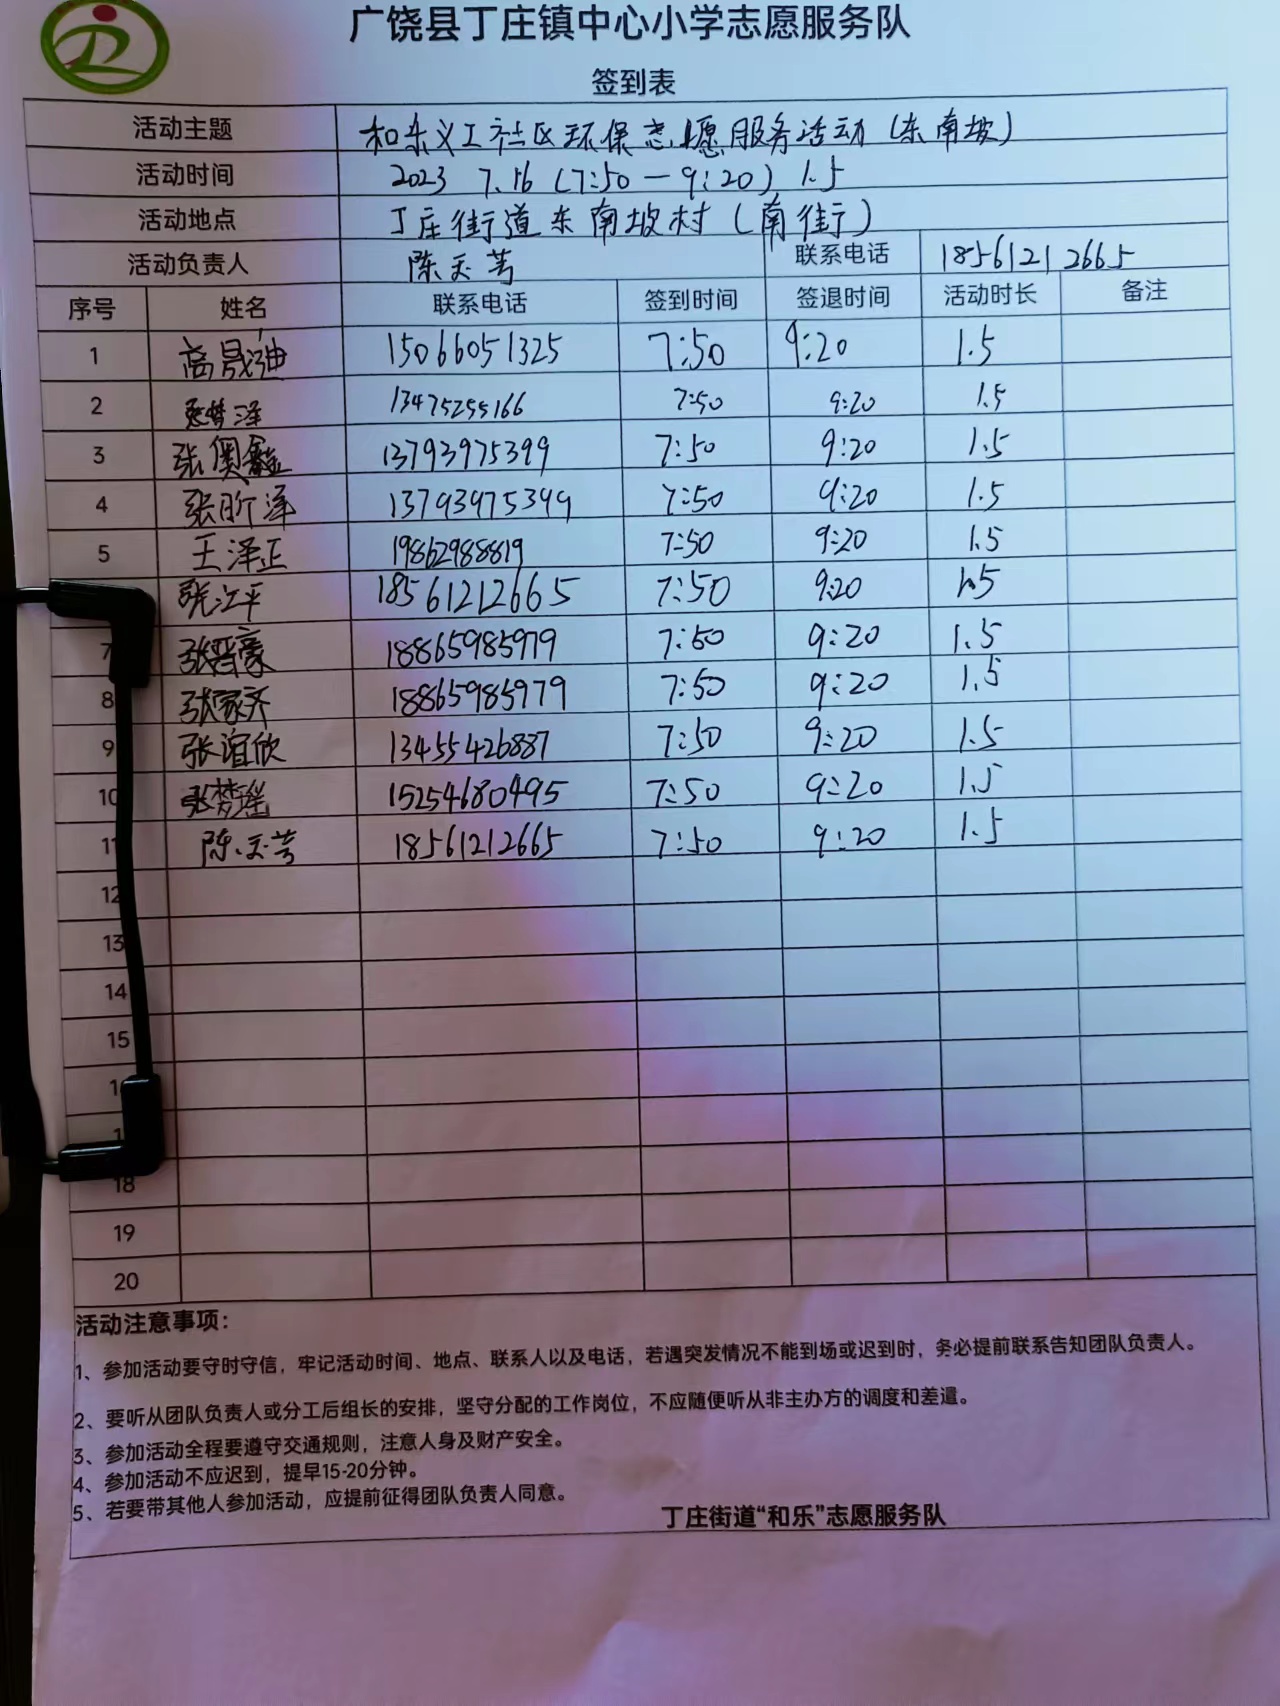 广饶县丁庄镇中心小学志愿服务队
签到表
活动主题 和乐义工社区环保志愿服务活动(东南坡)
活动时间 2023 7.16 (7:50-9:20) 1.5
活动地点 丁庄街道东南坡村(南街)
活动负责人 陈玉芳 联系电话 18561212665
序号 姓名 联系电话 签到时间 签退时间 活动时长 备注
1 高晟迪 15066051325 7:50 9:20 1.5
2 张梦泽 13475255166 7:50 9:20 1.5
3 张奥鑫 13793975399 7:50 9:20 1.5
4 张昕泽 13793975399 7:50 9:20 1.5
5 王泽正 19862988819 7:50 9:20 1.5
张江平 18561212665 7:50 9:20 1.5
7 张晋豪 18865985979 7:50 9:20 1.5
8 张家齐 18865985979 7:50 9:20 1.5
9 张谊欣 13455426887 7:50 9:20 1.5
10 张梦瑶 15254680495 7:50 9:20 1.5
11 陈玉芳 18561212665 7:50 9:20 1.5
12
13
14
15
18
19
20
活动注意事项:
1、参加活动要守时守信,牢记活动时间、地点、联系人以及电话,若遇突发情况不能到场或迟到时,务必提前联系告知团队负责人。
2、要听从团队负责人或分工后组长的安排,坚守分配的工作岗位,不应随便听从非主办方的调度和差遣。
3、参加活动全程要遵守交通规则,注意人身及财产安全。
4、参加活动不应迟到,提早15-20分钟。
5、若要带其他人参加活动,应提前征得团队负责人同意。
丁庄街道“和乐”志愿服务队